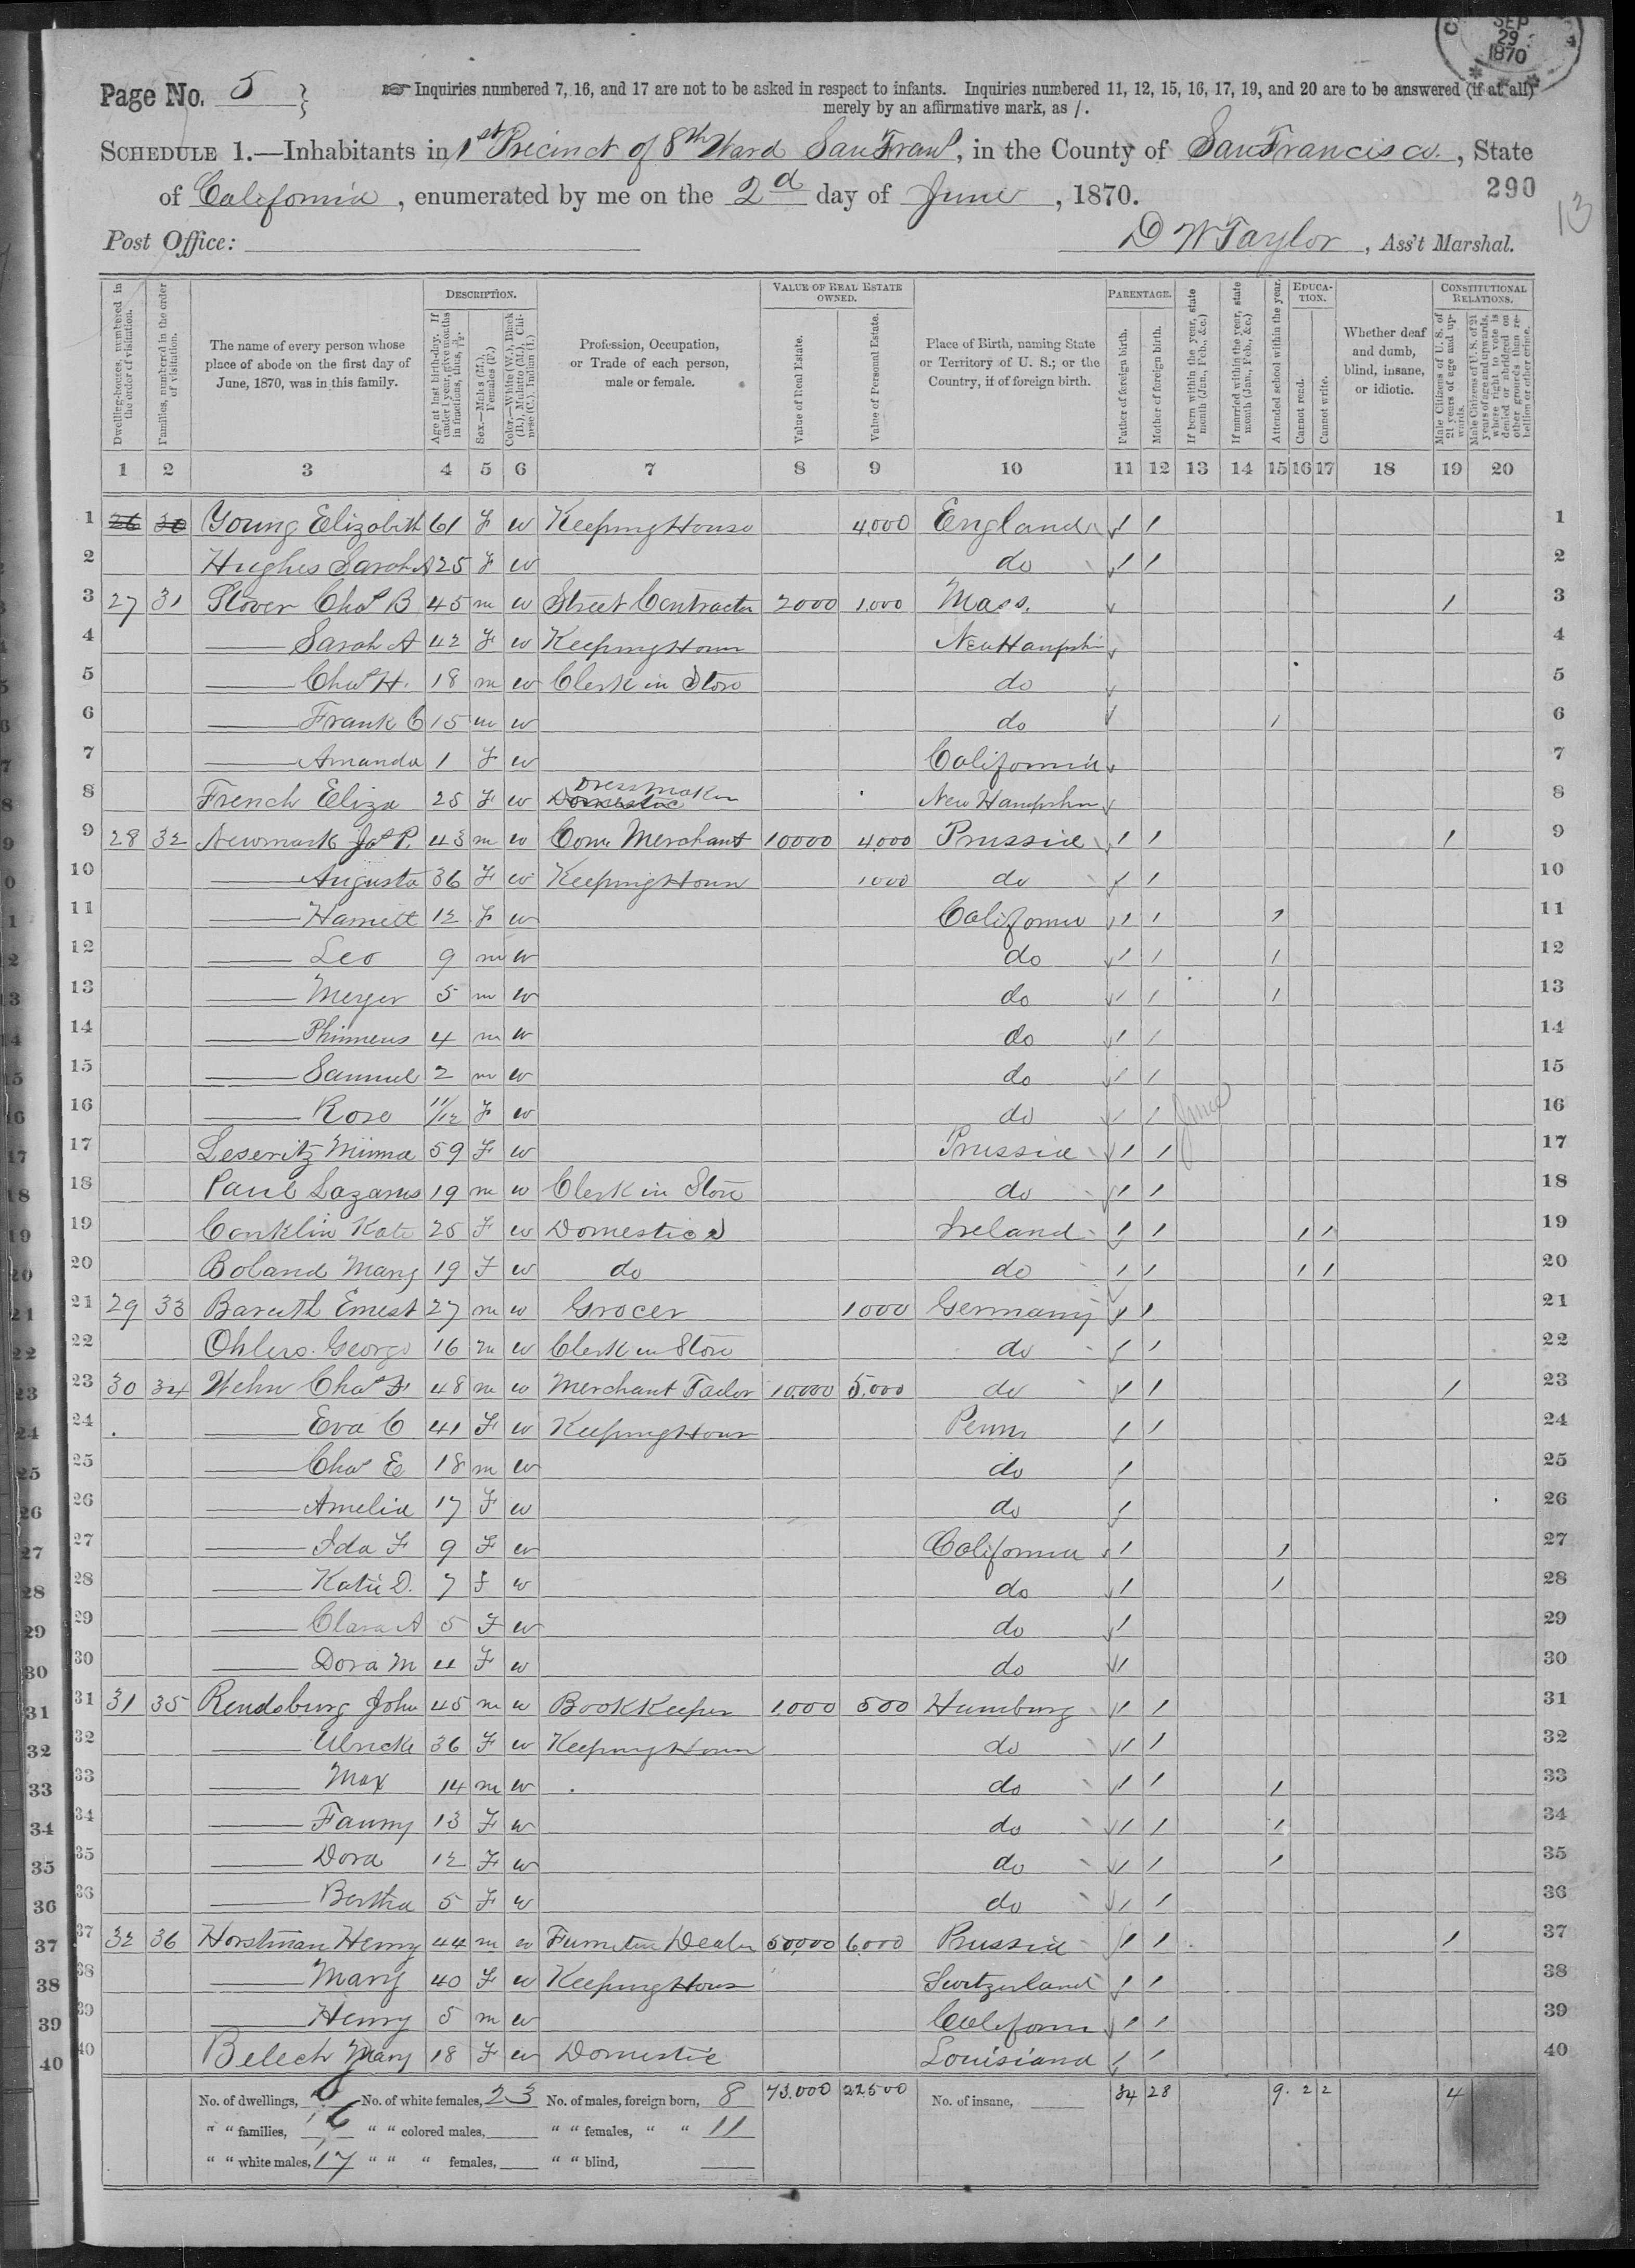 SEP
29
1870
Page No. 5
Inquiries numbered 7, 16, and 17 are not to be asked in respect to infants. Inquiries numbered 11, 12, 15, 16, 17, 19, and 20 are to be answered (if at all)
merely by an affirmative mark, as /.
SCHEDULE 1.—Inhabitants in 1st Precinct of 8th Ward San Fran, in the County of San Francisco, State
of California, enumerated by me on the 2d day of June, 1870.
290
13
Post Office:
D W Taylor, Ass't Marshal.
Dwelling-houses, numbered in the order of visitation.
Families, numbered in the order of visitation.
The name of every person whose place of abode on the first day of June, 1870, was in this family.
DESCRIPTION.
Age at last birth-day. If under 1 year, give months in fractions, thus,
Sex.—Males (M.), Females (F.)
Color.—White (W.), Black (B.), Mulatto (M.), Chinese (C.), Indian (I.)
Profession, Occupation, or Trade of each person, male or female.
VALUE OF REAL ESTATE OWNED.
Value of Real Estate.
Value of Personal Estate.
Place of Birth, naming State or Territory of U. S.; or the Country, if of foreign birth.
PARENTAGE.
Father of foreign birth.
Mother of foreign birth.
If born within the year, state month (Jan., Feb., &c.)
If married within the year, state month (Jan., Feb., &c.)
Attended school within the year.
EDUCATION.
Cannot read.
Cannot write.
Whether deaf and dumb, blind, insane, or idiotic.
CONSTITUTIONAL RELATIONS.
Male Citizens of U. S. of 21 years of age and upwards.
Male Citizens of U. S. of 21 years of age and upwards, where right to vote is denied or abridged on other grounds than rebellion or other crime.
1 2 3 4 5 6 7 8 9 10 11 12 13 14 15 16 17 18 19 20
1 26 30 Young Elizabeth 61 F W Keeping House 4,000 England 1 1 1
2 Hughes Sarah A 25 F W do 1 1 2
3 27 31 Stover Chas B 45 m W Street Contractor 2000 1,000 Mass. 1 3
4 Sarah A 42 F W Keeping House New Hampshire 4
5 Chas H. 18 m W Clerk in Store do 5
6 Frank C 15 m W do 1 6
7 Amanda 1 F W California 7
8 French Eliza 25 F W Domestic Dressmaker New Hampshire 8
9 28 32 Newmark Jos P. 43 m W Com Merchant 10000 4,000 Prussia 1 1 1 9
10 Augusta 36 F W Keeping House 1000 do 1 1 10
11 Harriett 12 F W California 1 1 1 11
12 Leo 9 m W do 1 1 1 12
13 Meyer 5 m W do 1 1 1 13
14 Phinneus 4 m W do 1 1 14
15 Samuel 2 m W do 1 1 15
16 Rosa 11/12 F W do 1 1 June 16
17 Leseritz Minna 59 F W Prussia 1 1 17
18 Paul Lazarus 19 m W Clerk in Store do 1 1 18
19 Conklin Kate 25 F W Domestic Ireland 1 1 1 1 19
20 Boland Mary 19 F W do do 1 1 1 1 20
21 29 33 Baruth Ernest 27 m W Grocer 1000 Germany 1 1 21
22 Ohlers George 16 m W Clerk in Store do 1 1 22
23 30 34 Wehn Chas F 48 m W Merchant Tailor 10,000 5,000 do 1 1 1 23
24 Eva C 41 F W Keeping House Penn 1 1 24
25 Chas E 18 m W do 1 25
26 Amelia 17 F W do 1 26
27 Ida F 9 F W California 1 1 27
28 Katie D. 7 F W do 1 1 28
29 Clara A 5 F W do 1 29
30 Dora M 4 F W do 1 30
31 31 35 Rendsburg John 45 m W Book Keeper 1,000 500 Hamburg 1 1 31
32 Ulricke 36 F W Keeping House do 1 1 32
33 Max 14 m W do 1 1 1 33
34 Fanny 13 F W do 1 1 1 34
35 Dora 12 F W do 1 1 1 35
36 Bertha 5 F W do 1 1 36
37 32 36 Horstman Henry 44 m W Furniture Dealer 50,000 6,000 Prussia 1 1 1 37
38 Mary 40 F W Keeping House Switzerland 1 1 38
39 Henry 5 m W California 1 1 39
40 Belech Mary 18 F W Domestic Louisiana 1 1 40
No. of dwellings, 6 No. of white females, 23 No. of males, foreign born, 8 73,000 22500 No. of insane, 34 28 9 2 2 4
" " families, 6 " " colored males, " " females, " " 11
" " white males, 17 " " " females, " " blind,